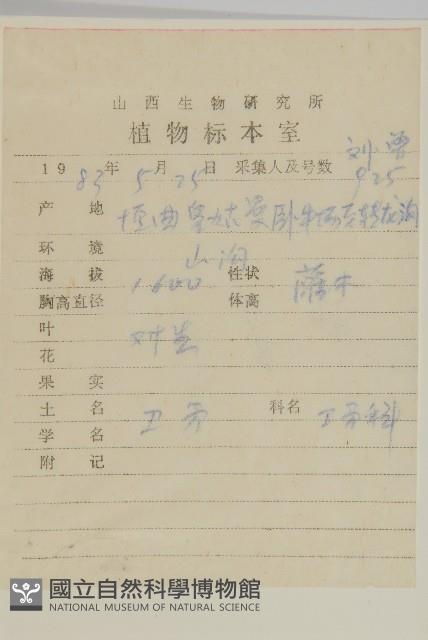 山西生物研究所
植物标本室
1983年5月25日 采集人及号数 刘 925
产地 垣曲
环境 山沟
海拔 1600 性状 藤木
胸高直径 体高
叶 对生
花
果实
土名 卫矛 科名 卫矛科
学名
附记
國立自然科學博物館
NATIONAL MUSEUM OF NATURAL SCIENCE